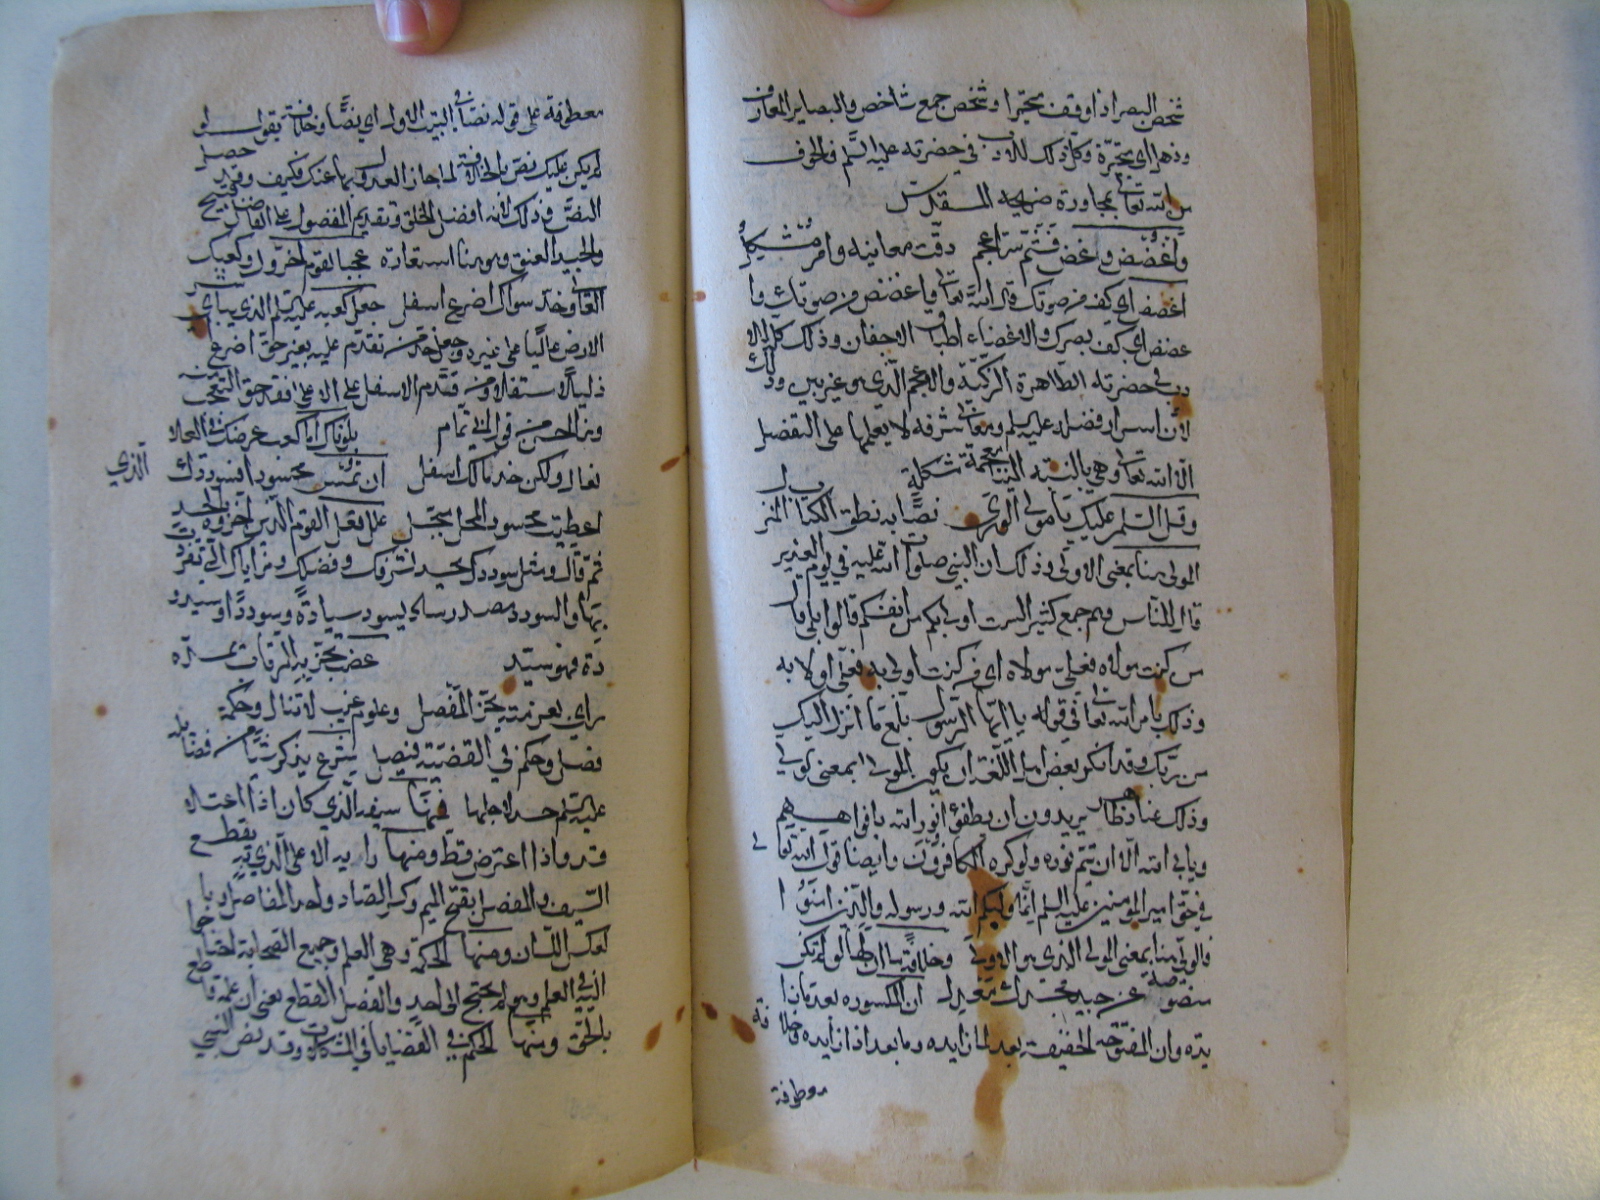 شخص البصر اذا وقف متحيرا وشخص جمع شاخص والبصاير المعارف
وذهل اي متحيرة وكل ذلك للادب في حضرته عليه السلم والخوف
من الله تعالى بمجاورة ضريحه المقدس
واغضض واغض فثم سر اعجم دقت معانيه وامر مشكل
اغضض اي كف من صوتك قال الله تعالى واغضض من صوتك وا
غضض اي كف بصرك والاغضاء اطباق الاجفان وذلك كله للا
دب في حضرته الطاهرة الزكية والاعجم الذي هو غير بين وذلك
لان اسرار فضله عليه السلم ومعاني شرفه لا يعلمها على التفصيل
الا الله تعالى وهي بالنسبة الينا معجمة مشكلة
وقل السلم عليك يا مولى الورى نصا به نطق الكتاب المنزل
المولى هنا بمعنى الاولى وذلك ان النبي صلوات الله عليه في يوم الغدير
قال للناس وهم جمع كثير الست اولى بكم من انفسكم قالوا بلى قال
من كنت مولاه فعلي مولاه اي من كنت اولى به فعلي اولا به
وذلك بامر الله تعالى في قوله يا ايها الرسول بلغ ما انزل اليك
من ربك وقد انكر بعض اهل اللغة ان يكون المولى بمعنى الاولى
وذلك عناد ظاهر يريدون ان يطفؤا نور الله بافواههم
ويابى الله الا ان يتم نوره ولو كره الكافرون وايضا قول الله تعالى
في حق امير المومنين عليه السلم انما وليكم الله ورسوله والذين امنوا
فالولي هنا بمعنى المولى الذي هو الاولى وخلافة ما ان لها لو لم تكن
منصوصة عن جيد مجدك معدل ان المكسورة بعد ما زا
يدة وان المفتوحة الخفيفة بعد لما زايدة وما بعد اذا زايدة وخلافة
معطوفة
معطوفة على قوله نصا في البيت الاول اي نصا وخلافة يقول لو
لم يكن عليك نص بالخلافة لما جاز العدول بها عنك فكيف وقد حصل
النص وذلك لانه افضل الخلق وتقديم المفضول على الفاضل قبيح
والجيد العنق وهو هنا استعارة عجبا لقوم اخروك وكعبك
العالي وخد سواك اضرع اسفل جعل كعبه عليه السلم الذي يباشر
الارض عاليا على غيره وجعل خد من تقدم عليه بغير حق اضرع
ذليلا مستفلا ومن قدم الاسفل على الاعلى فقد حق التعجب
ومن الحسن من قول ابي تمام
نعال ولكن خد مالك اسفل ان تمس محسودا فسوددك الذي
اعطيت محسود المحل مبجل على فعل القوم الذين اخروه بالحسد
ثم قال ومثل سوددك يحسد لشرفك وفضلك ومزاياك التي تفردت
بها والسودد مصدر ساد يسود سيادة وسوددا وسيدو
دة فهو سيد عضب تحز به الرقاب يمده
راي بعزمته يحز المفصل وعلوم غيب لا تنال وحكمة
فصل وحكم في القضية فيصل شرع يذكر شيئا من فضايله
عليه السلم حسد لاجلها فمنها سيفه الذي كان اذا اعتلاه
قد واذا اعترض قط ومنها رايه الاعلى الذي به يقطع
السيف والمفصل بفتح الميم وكسر الصاد واحد المفاصل وبا
لعكس اللسان ومنها الحكمة وهي العلم وجميع الصحابة احتاجوا
اليه في العلم وهو لم يحتج الى احد والفصل القطع بمعنى ان علمه قاطع
بالحق ومنها الحكم في القضايا في المشكلات وقد نص النبي